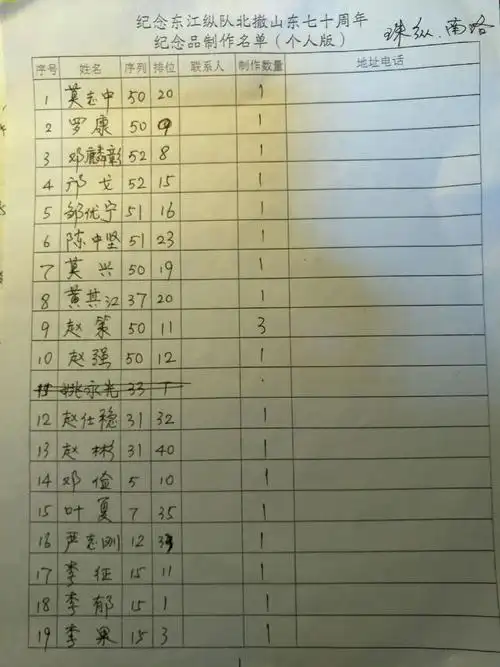 纪念东江纵队北撤山东七十周年
纪念品制作名单（个人版）
珠纵.南路
序号 姓名 序列 排位 联系人 制作数量 地址电话
1 莫志中 50 20 1
2 罗康 50 9 1
3 邓麟彰 52 8 1
4 邝戈 52 15 1
5 邹优宁 51 16 1
6 陈中坚 51 23 1
7 莫兴 50 19 1
8 黄其江 37 20 1
9 赵策 50 11 3
10 赵强 50 12 1
11 姚永光 33 1
12 赵仕稳 31 32 1
13 赵彬 31 40 1
14 邓俭 5 10 1
15 叶夏 7 35 1
16 严志刚 12 1
17 李征 15 11 1
18 李郁 15 1 1
19 李果 15 3 1